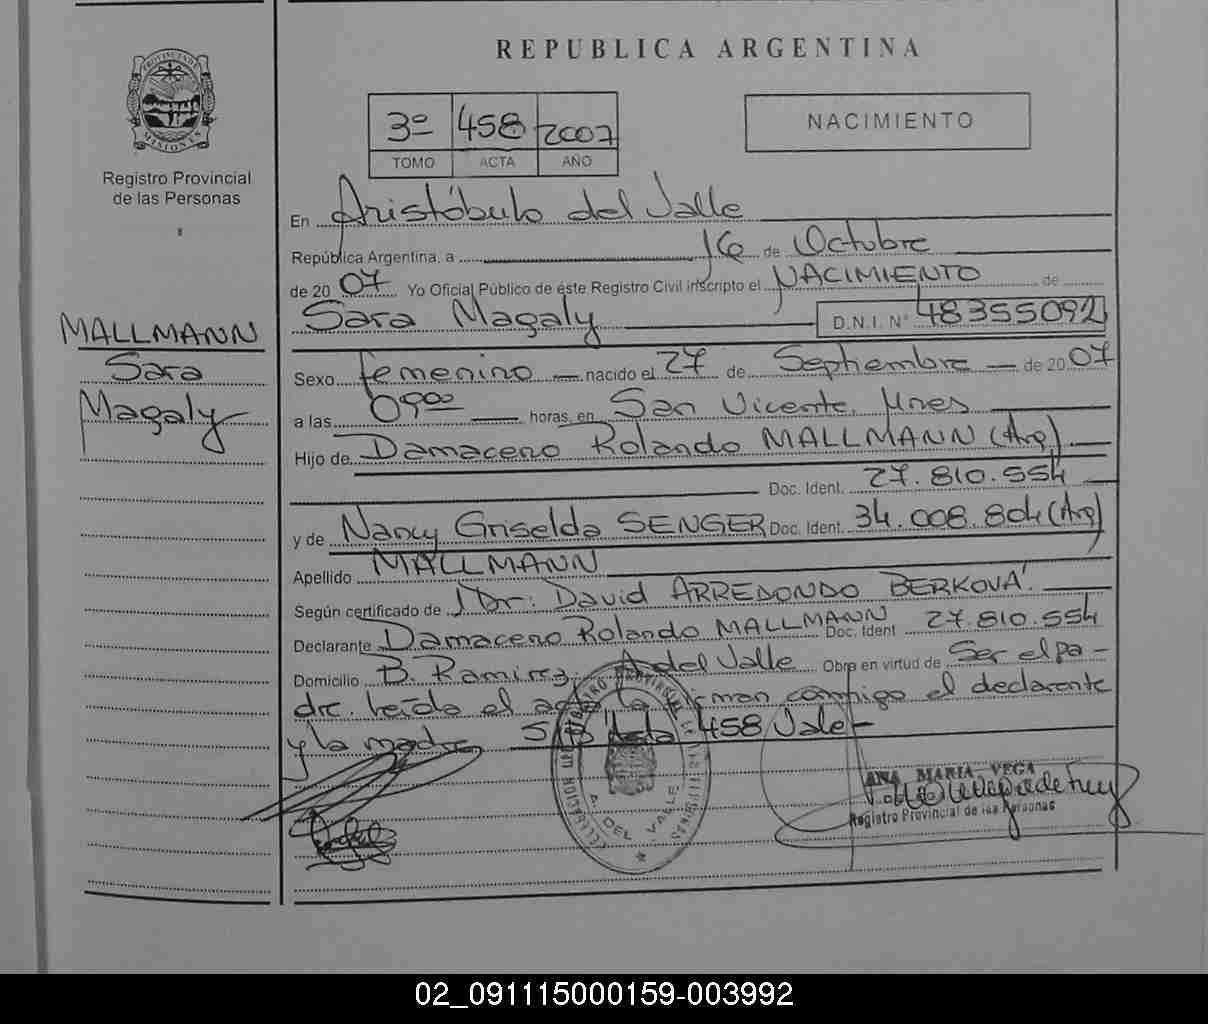 REPUBLICA ARGENTINA
PROVINCIA DE
MISIONES
Registro Provincial
de las Personas
3º 458 2007
TOMO ACTA AÑO
NACIMIENTO
En Aristóbulo del Valle
República Argentina, a 16 de Octubre
de 20 07 Yo Oficial Público de éste Registro Civil inscripto el NACIMIENTO de
Sara Magaly D.N.I. Nº 48355092
MALLMANN
Sara
Magaly
Sexo femenino nacido el 27 de Septiembre de 20 07
a las 09ºº horas, en San Vicente, Mnes
Hijo de Damaceno Rolando MALLMANN (Arg)
Doc. Ident. 27.810.554
y de Nancy Griselda SENGER Doc. Ident. 34.008.804 (Arg)
Apellido MALLMANN
Según certificado de Dr: David ARREDONDO BERKOVÁ.
Declarante Damaceno Rolando MALLMANN Doc. Ident 27.810.554
Domicilio B. Ramirez, A. del Valle Obra en virtud de Ser el pa-
dre. leída el acta la firman conmigo el declarante
y la madre 458 Vale-
A. DEL VALLE
ANA MARIA VEGA
Registro Provincial de las Personas
02_091115000159-003992